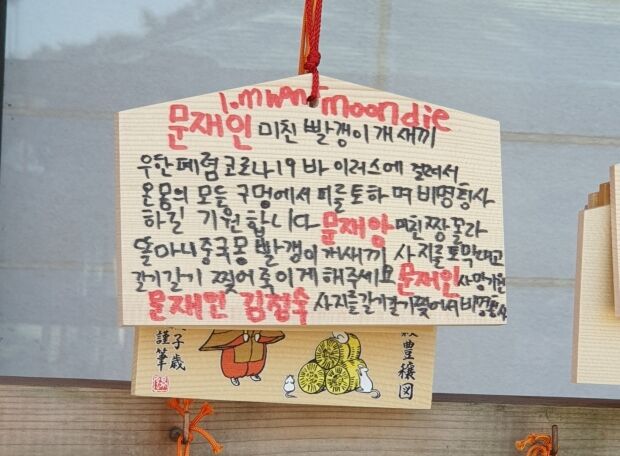 I.m want moon die
문재인 미친 빨갱이 개새끼
우한폐렴 코로나19 바이러스에 걸려서
온몸의 모든 구멍에서 피를 토하며 비명횡사
하길 기원합니다 문재앙 미친 짱꼴라
똘마니 중국몽 빨갱이 개새끼 사지를 토막내고
갈기갈기 찢어 죽이게 해주세요 문재인 사망기원
문재인 김정숙 사지를 갈기갈기 찢어서 비명횡사
子歳
謹筆
豊穣図